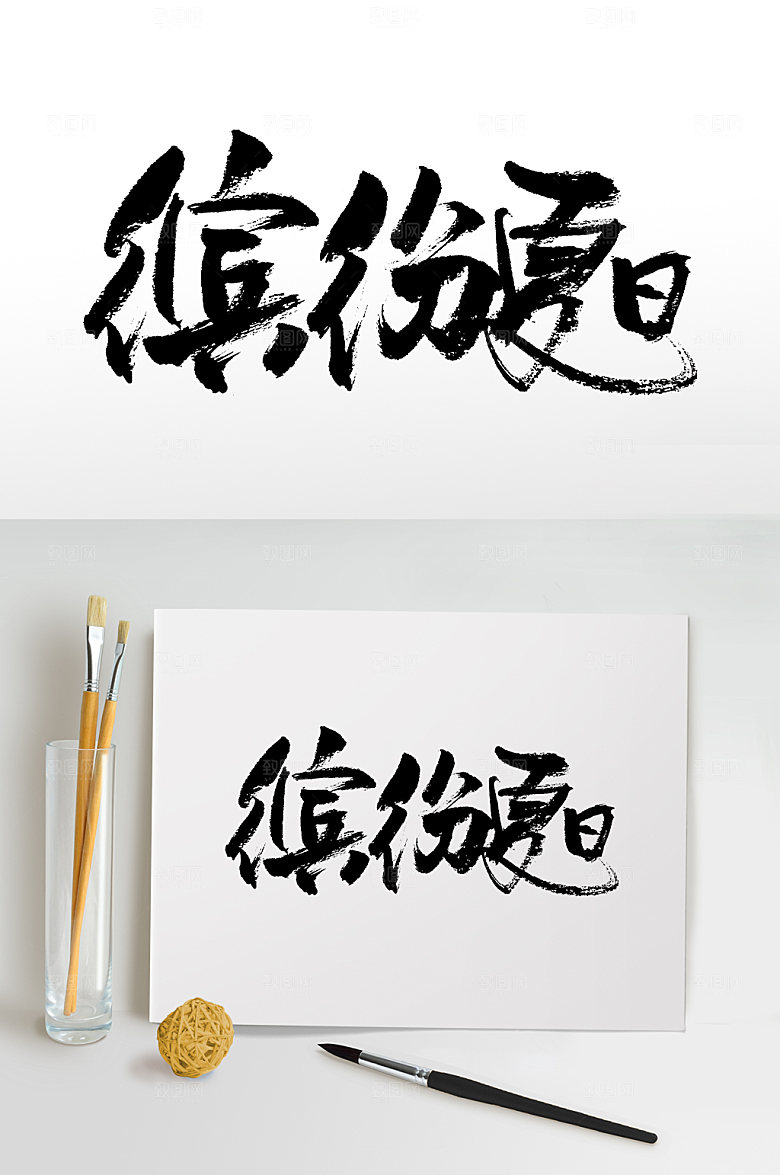 缤纷夏日
缤纷夏日